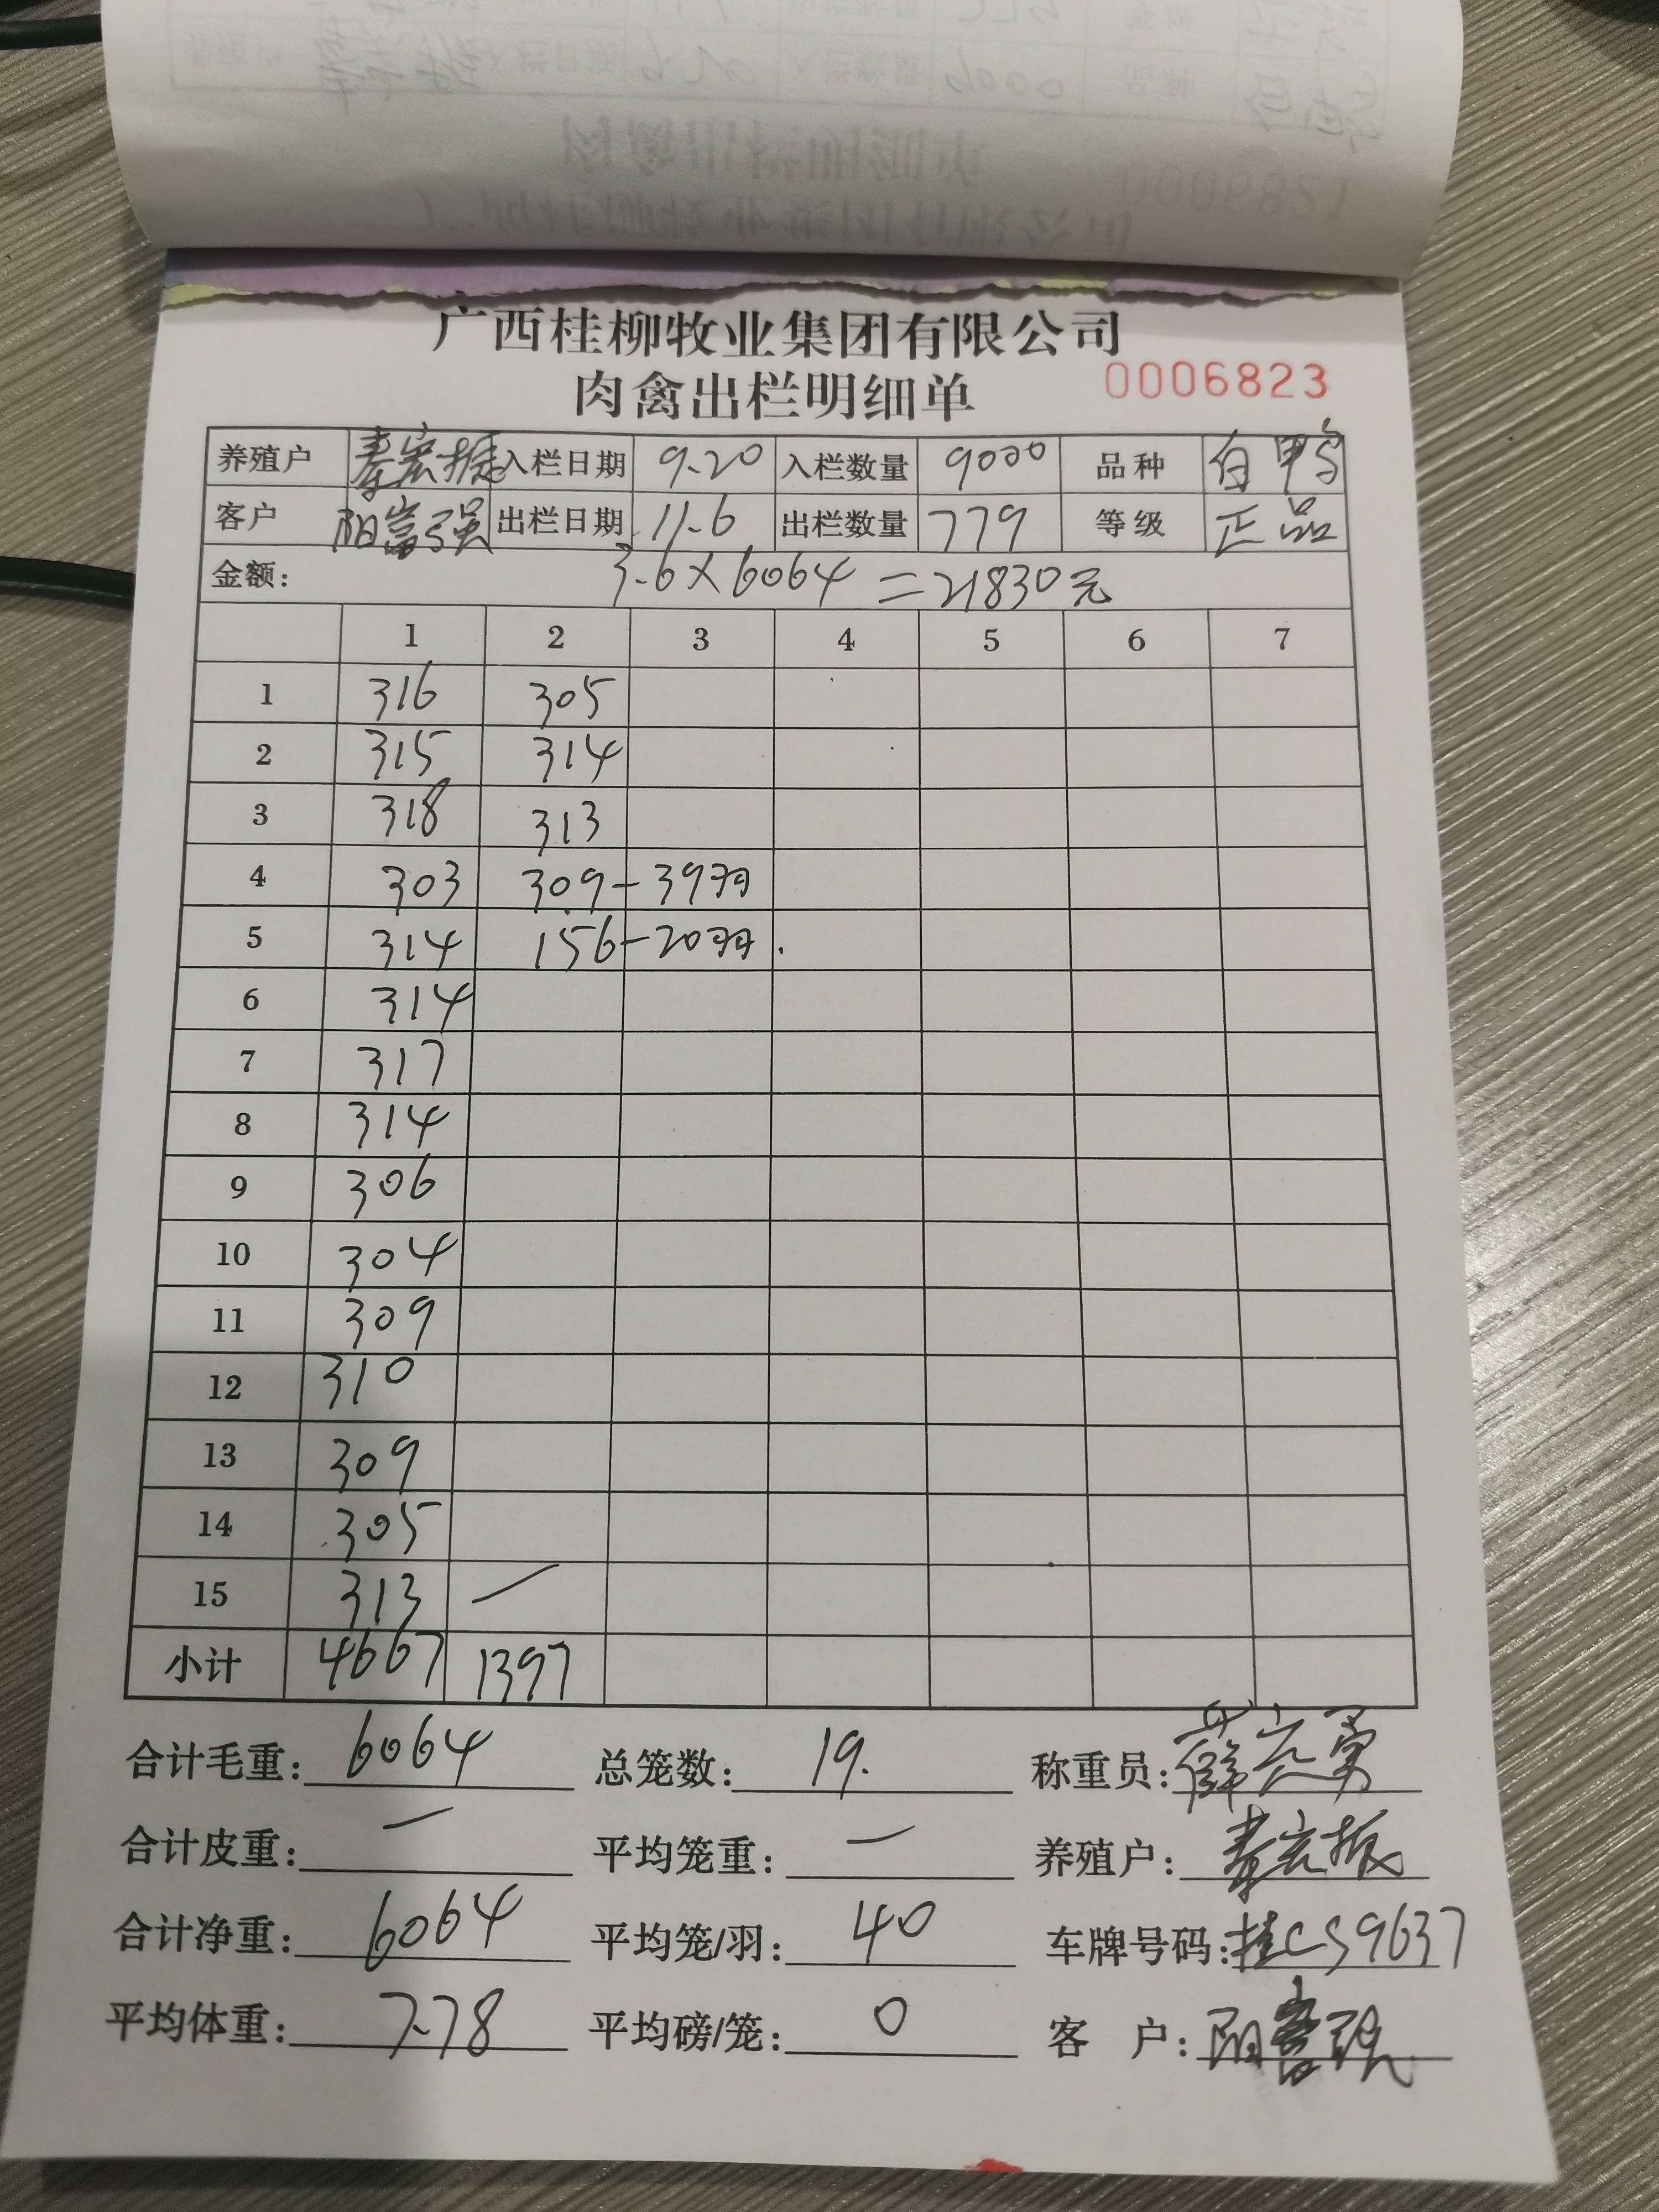 广西桂柳牧业集团有限公司
肉禽出栏明细单 0006823
养殖户 秦宏振 入栏日期 9.20 入栏数量 9000 品种 白鸭
客户 阳富强 出栏日期 11.6 出栏数量 779 等级 正品
金额: 3.6×6064=21830元
1 2 3 4 5 6 7
1 316 305
2 315 314
3 318 313
4 303 309-39羽
5 314 156-20羽
6 314
7 317
8 314
9 306
10 304
11 309
12 310
13 309
14 305
15 313 —
小计 4667 1397
合计毛重: 6064 总笼数: 19. 称重员:
合计皮重: — 平均笼重: — 养殖户: 秦宏振
合计净重: 6064 平均笼/羽: 40 车牌号码: 桂CS9637
平均体重: 7.78 平均磅/笼: 0 客 户: 阳富强